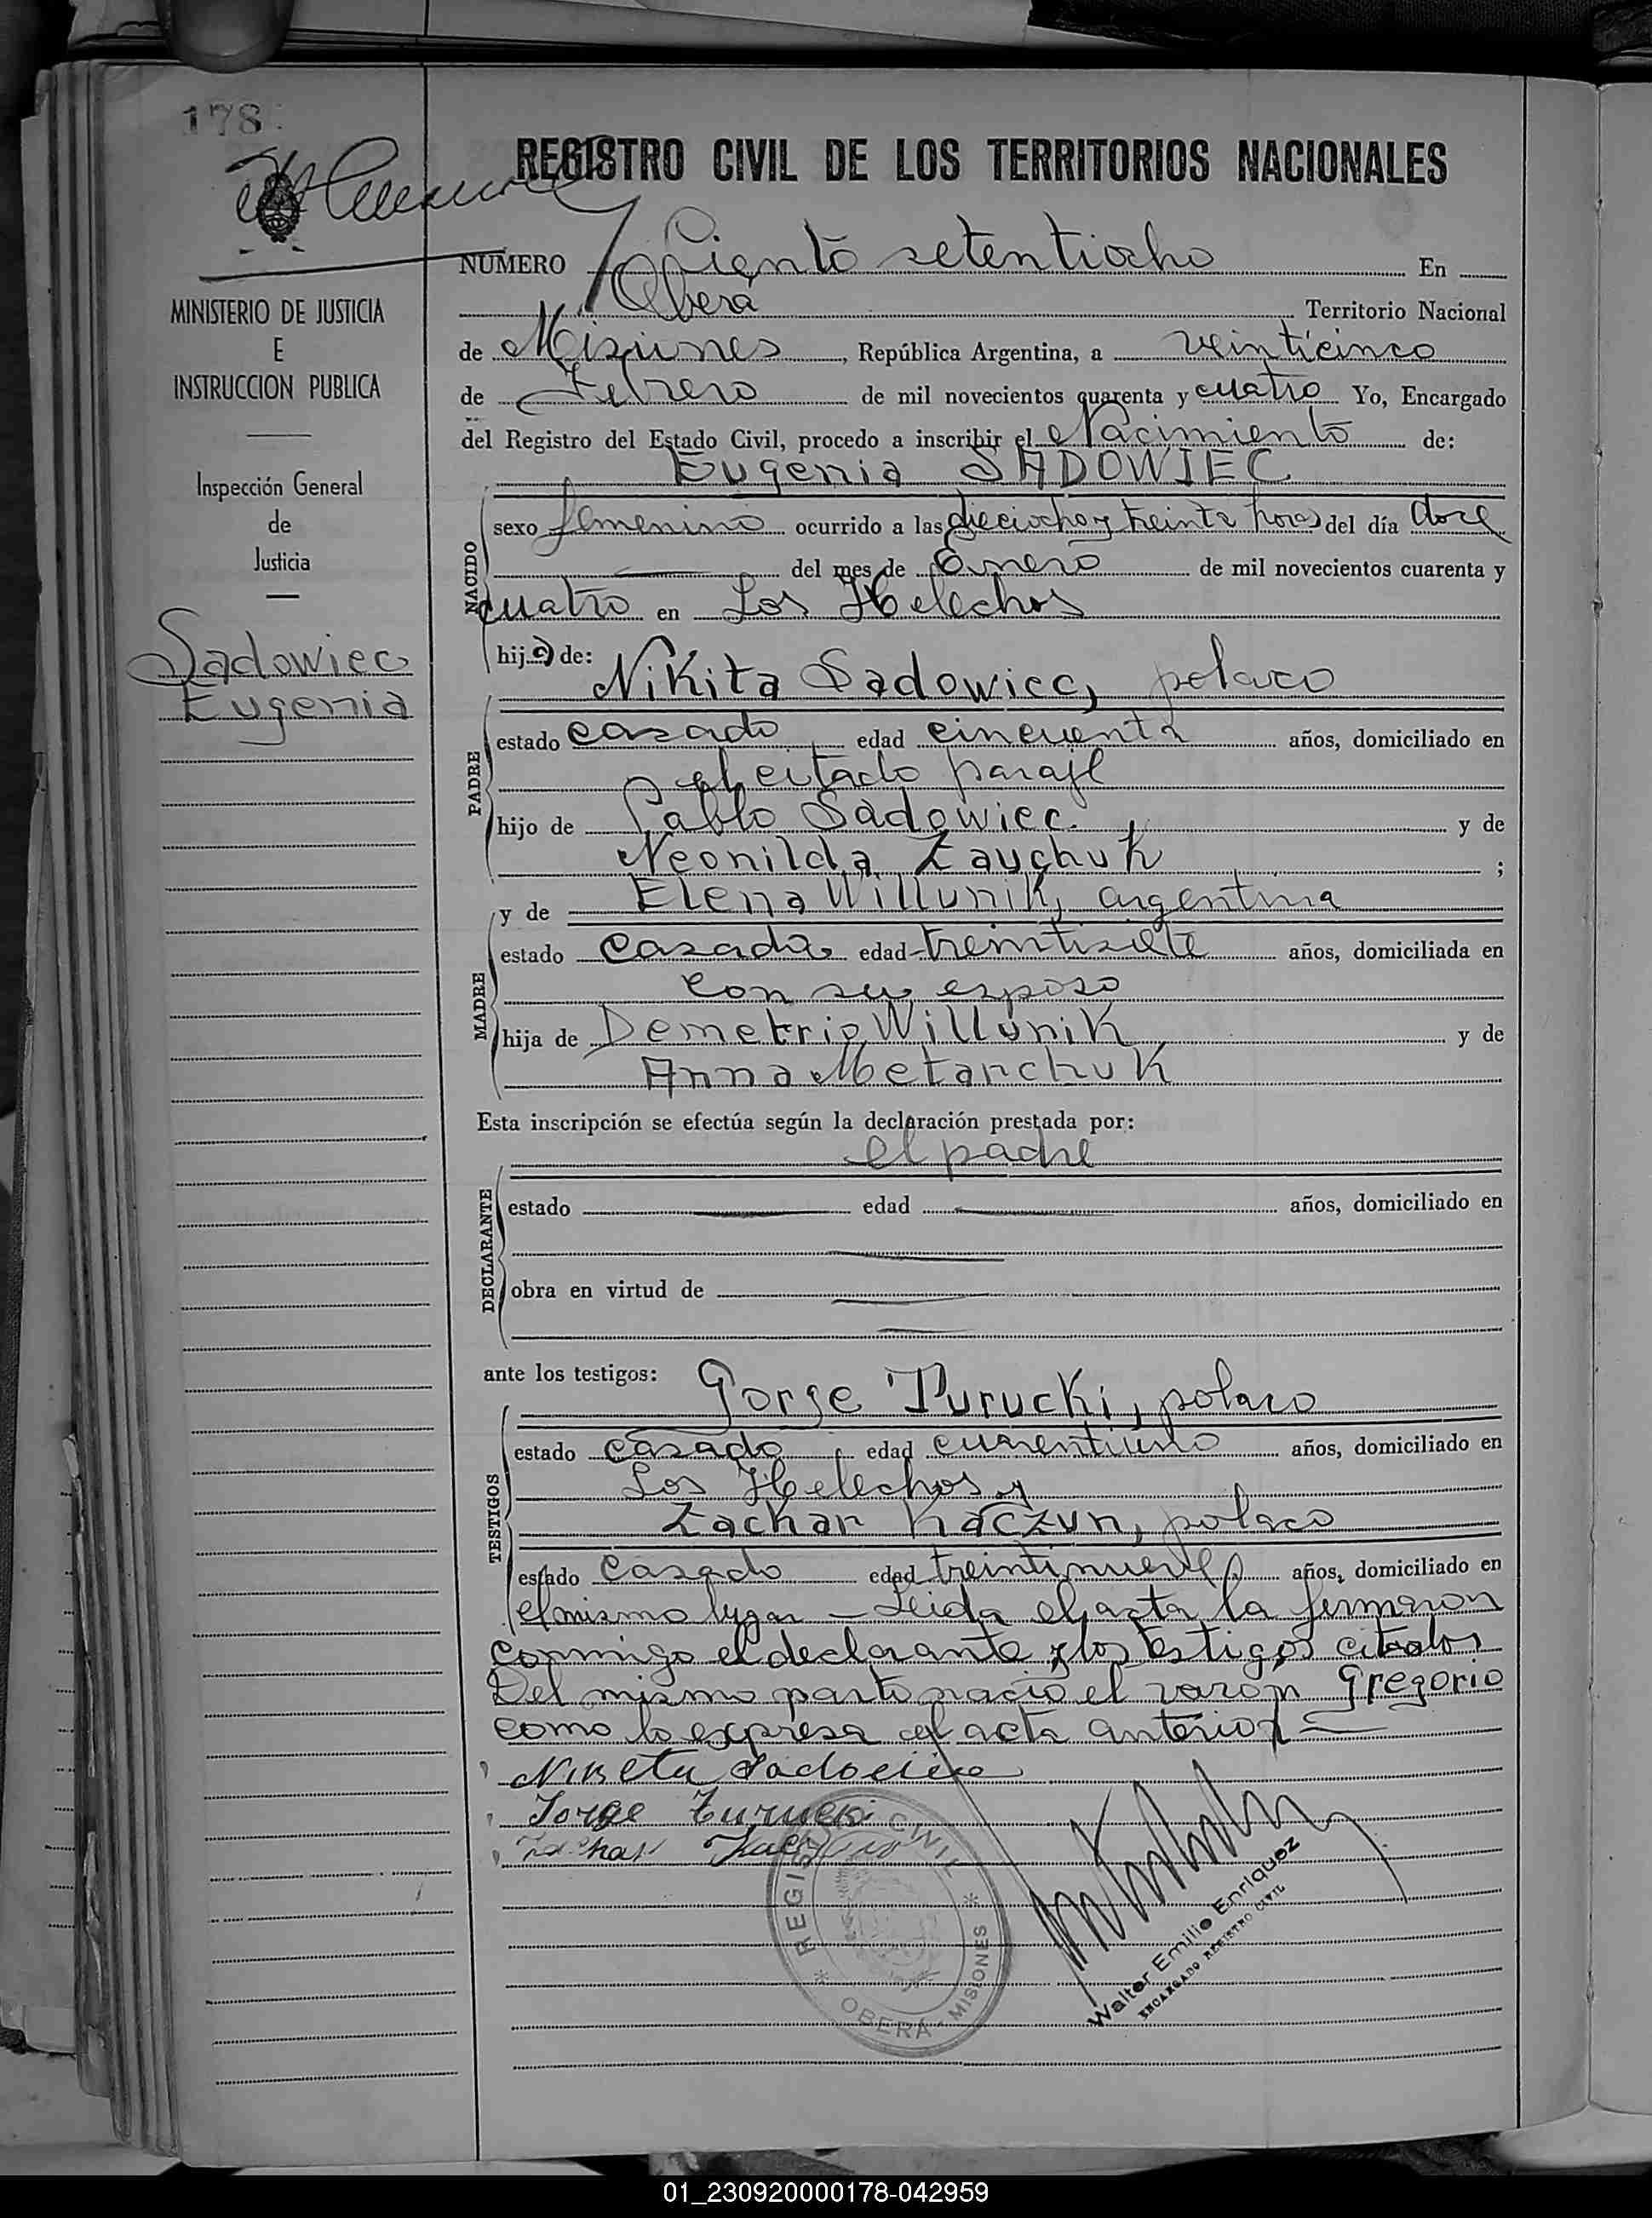 178
REGISTRO CIVIL DE LOS TERRITORIOS NACIONALES
NUMERO Ciento setentiocho En
Oberá Territorio Nacional
de Misiones, República Argentina, a veinticinco
de Febrero de mil novecientos cuarenta y cuatro Yo, Encargado
del Registro del Estado Civil, procedo a inscribir el Nacimiento de:
Eugenia SADOWIEC
NACIDO
sexo femenino ocurrido a las dieciocho y treinta horas del día doce
del mes de Enero de mil novecientos cuarenta y
cuatro en Los Helechos
hija de:
Nikita Sadowiec, polaco
PADRE
estado casado edad cincuenta años, domiciliado en
el citado paraje
hijo de Pablo Sadowiec y de
Neonilda Zaychuk ;
y de Elena Willunik, argentina
MADRE
estado casada edad treintisiete años, domiciliada en
con su esposo
hija de Demetrio Willunik y de
Anna Metarchuk
Esta inscripción se efectúa según la declaración prestada por:
el padre
DECLARANTE
estado edad años, domiciliado en
obra en virtud de
ante los testigos:
Jorge Turucki, polaco
TESTIGOS
estado casado edad cuarentiuno años, domiciliado en
Los Helechos y
Zachar Kaczun, polaco
estado casado edad treintinueve años, domiciliado en
el mismo lugar — Leida el acta la firmaron
conmigo el declarante y los testigos citados
Del mismo parto nació el varón Gregorio
como lo expresa el acta anterior
Jorge Turucki
Zachar
MINISTERIO DE JUSTICIA
E
INSTRUCCION PUBLICA
Inspección General
de
Justicia
Sadowiec
Eugenia
REGISTRO CIVIL
OBERÁ - MISIONES
Walter Emilio Enriquez
ENCARGADO REGISTRO CIVIL
01_230920000178-042959